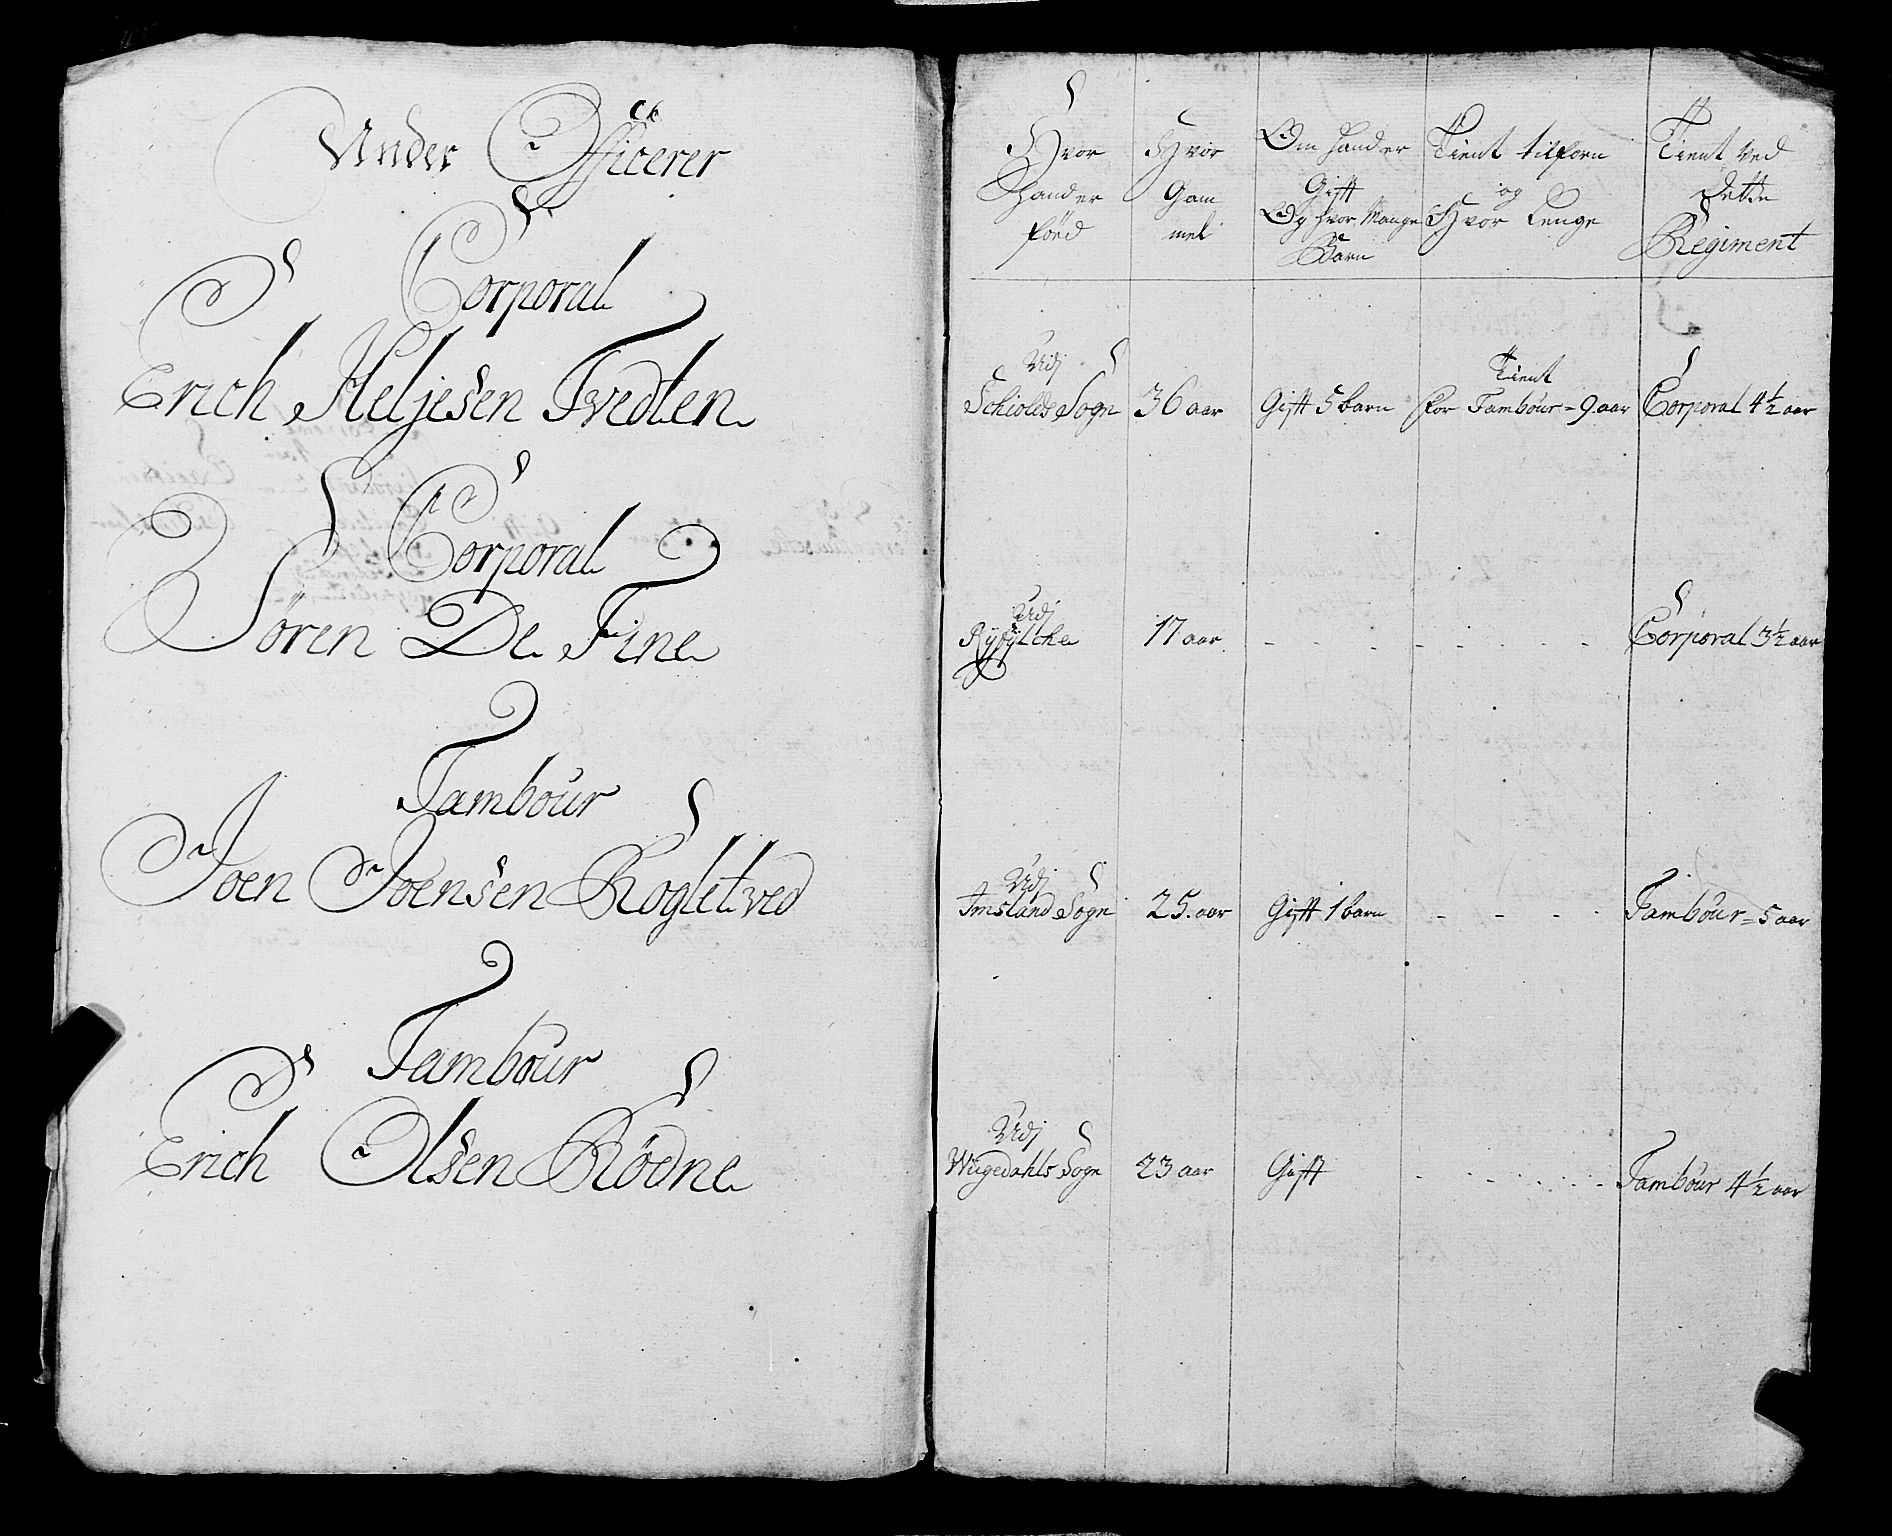 Under Officerer
Corporal
Erich Heljesen Tvedten
Corporal
Sören De Fine
Tambour
Joen Joensen Rogletved
Tambour
Erich Olsen Rödne
Hvor
hand er
föed
Hvor
Gam
mel
Om hand er
Gift
Og Hvor Mange
Barn
Tient tilforn
og
Hvor Lenge
Tient ved
dette
Regiment
Udj
Schiolds Sogn
36 aar
Gift 5 barn
Tient
for Tambour = 9 aar
Corporal 4 1/2 aar
Udj
Ryfylche
17 aar
Corporal 3 1/2 aar
Udj
Imsland Sogn
25. aar
Gift 1 barn
Tambour = 5 aar
Udj
Wigedahls Sogn
23 aar
Gift
Tambour 4 1/2 aar